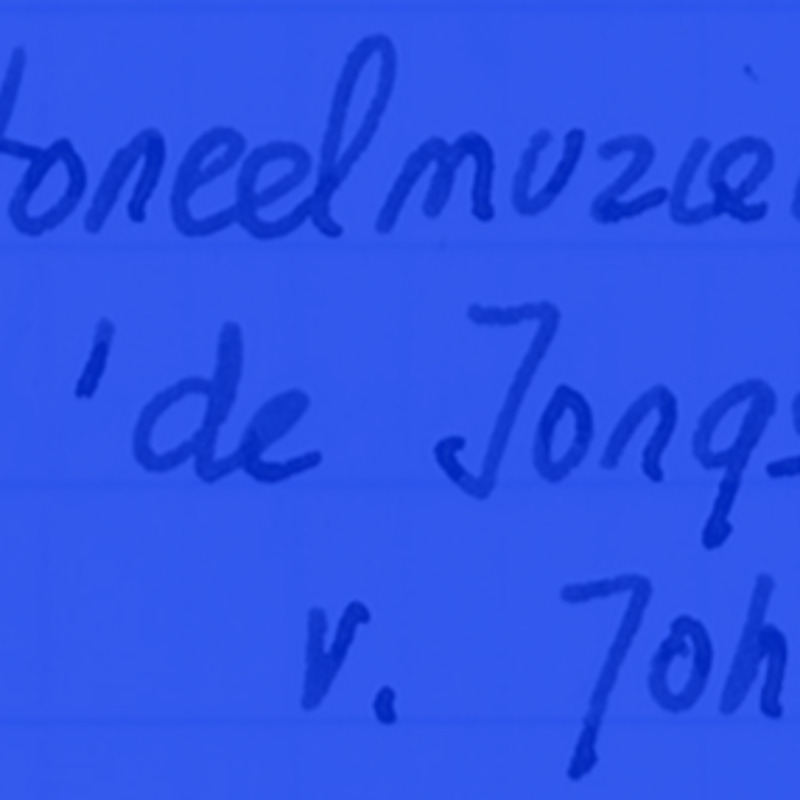 toneelmuzie
'de Jongs
v. Joh